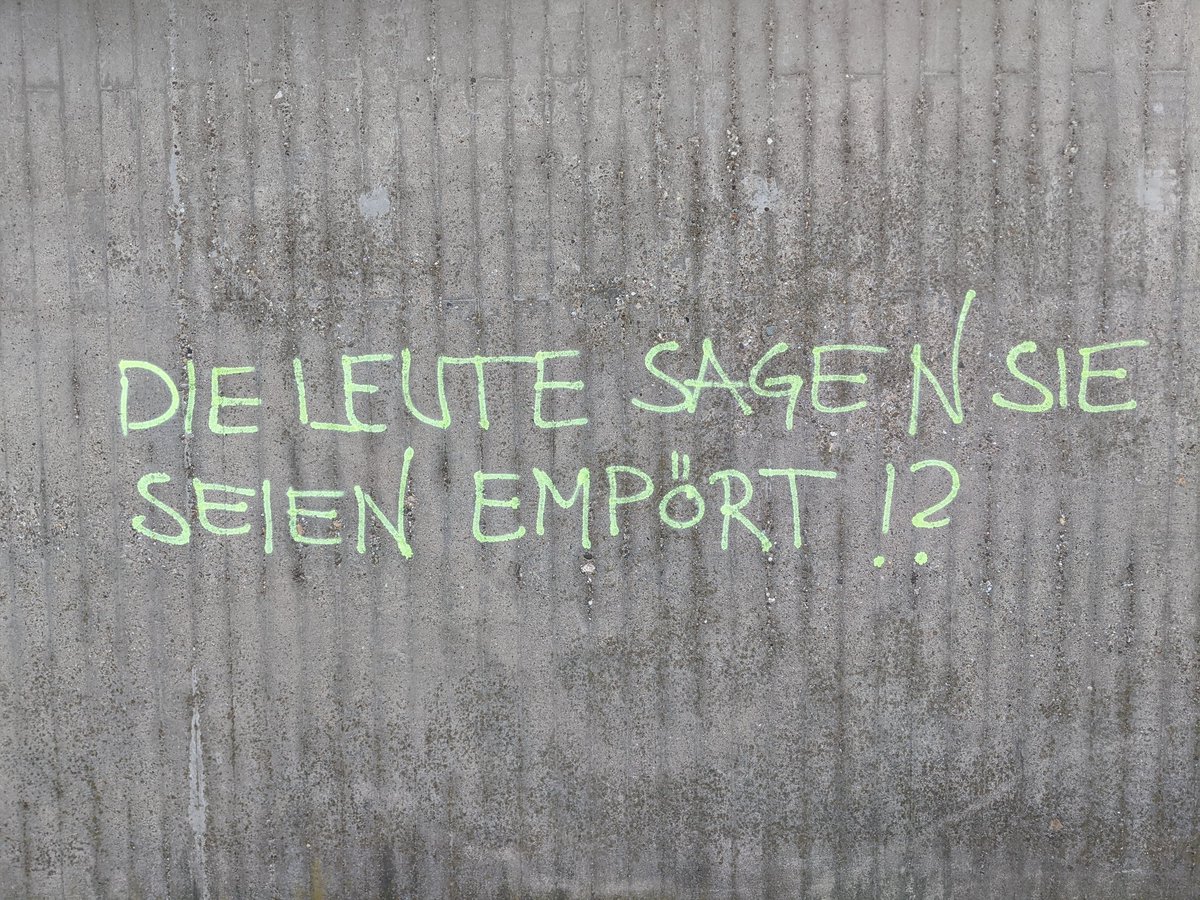 DIE LEUTE SAGEN SIE
SEIEN EMPÖRT !?